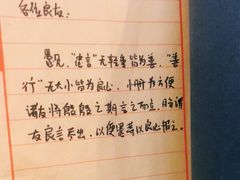 各位良友：
愚见，“建言”无轻重皆为善，“善
行”无大小皆为良心，小册为方便
诸友将殷殷之期言之而立，盼诸
友良言尽出，以便愚等以良心相之。